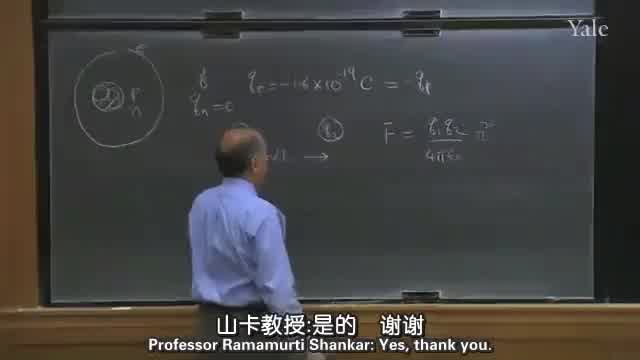 Yale
e
q
qₑ = -1.6 × 10⁻¹⁹ C = -qₚ
p
n
qₙ = 0
q₂
→
F = q₁q₂ / 4πε₀
山卡教授:是的 谢谢
Professor Ramamurti Shankar: Yes, thank you.